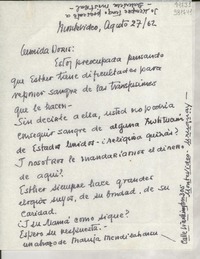 Montevideo, Agosto 27/62
Querida Doris:
Estoy preocupada pensando
que Esther tiene dificultades para
reponer sangre de las transfusiones
que le hacen -
Sin decirle a ella, usted no podría
conseguir sangre de alguna Institución
de Estados Unidos - ¿Religiosa quizás?
Y nosotros le mandaríamos el dinero
de aquí?
Esther siempre hace grandes
elogios suyos, de su bondad, de su
caridad.
¿Y su mamá como sigue?
Espero su respuesta -
un abrazo de